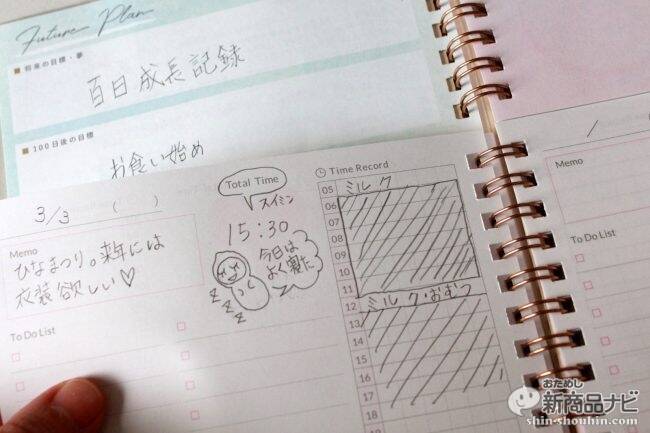 Future Plan
■ 将来の目標・夢
百日成長記録
■ 100日後の目標
お食い始め
3/3 ( )
Memo
ひなまつり。来年には
衣装欲しい♡
To Do List
Total Time
スイミン
15:30
今日は
よく寝た
z z z
Time Record
05 ミルク
06
07
08
09
10
11
12 ミルク・おむつ
13
14
15
16
17
18
/
Memo
To Do List
おためし
新商品ナビ
shin-shouhin.com